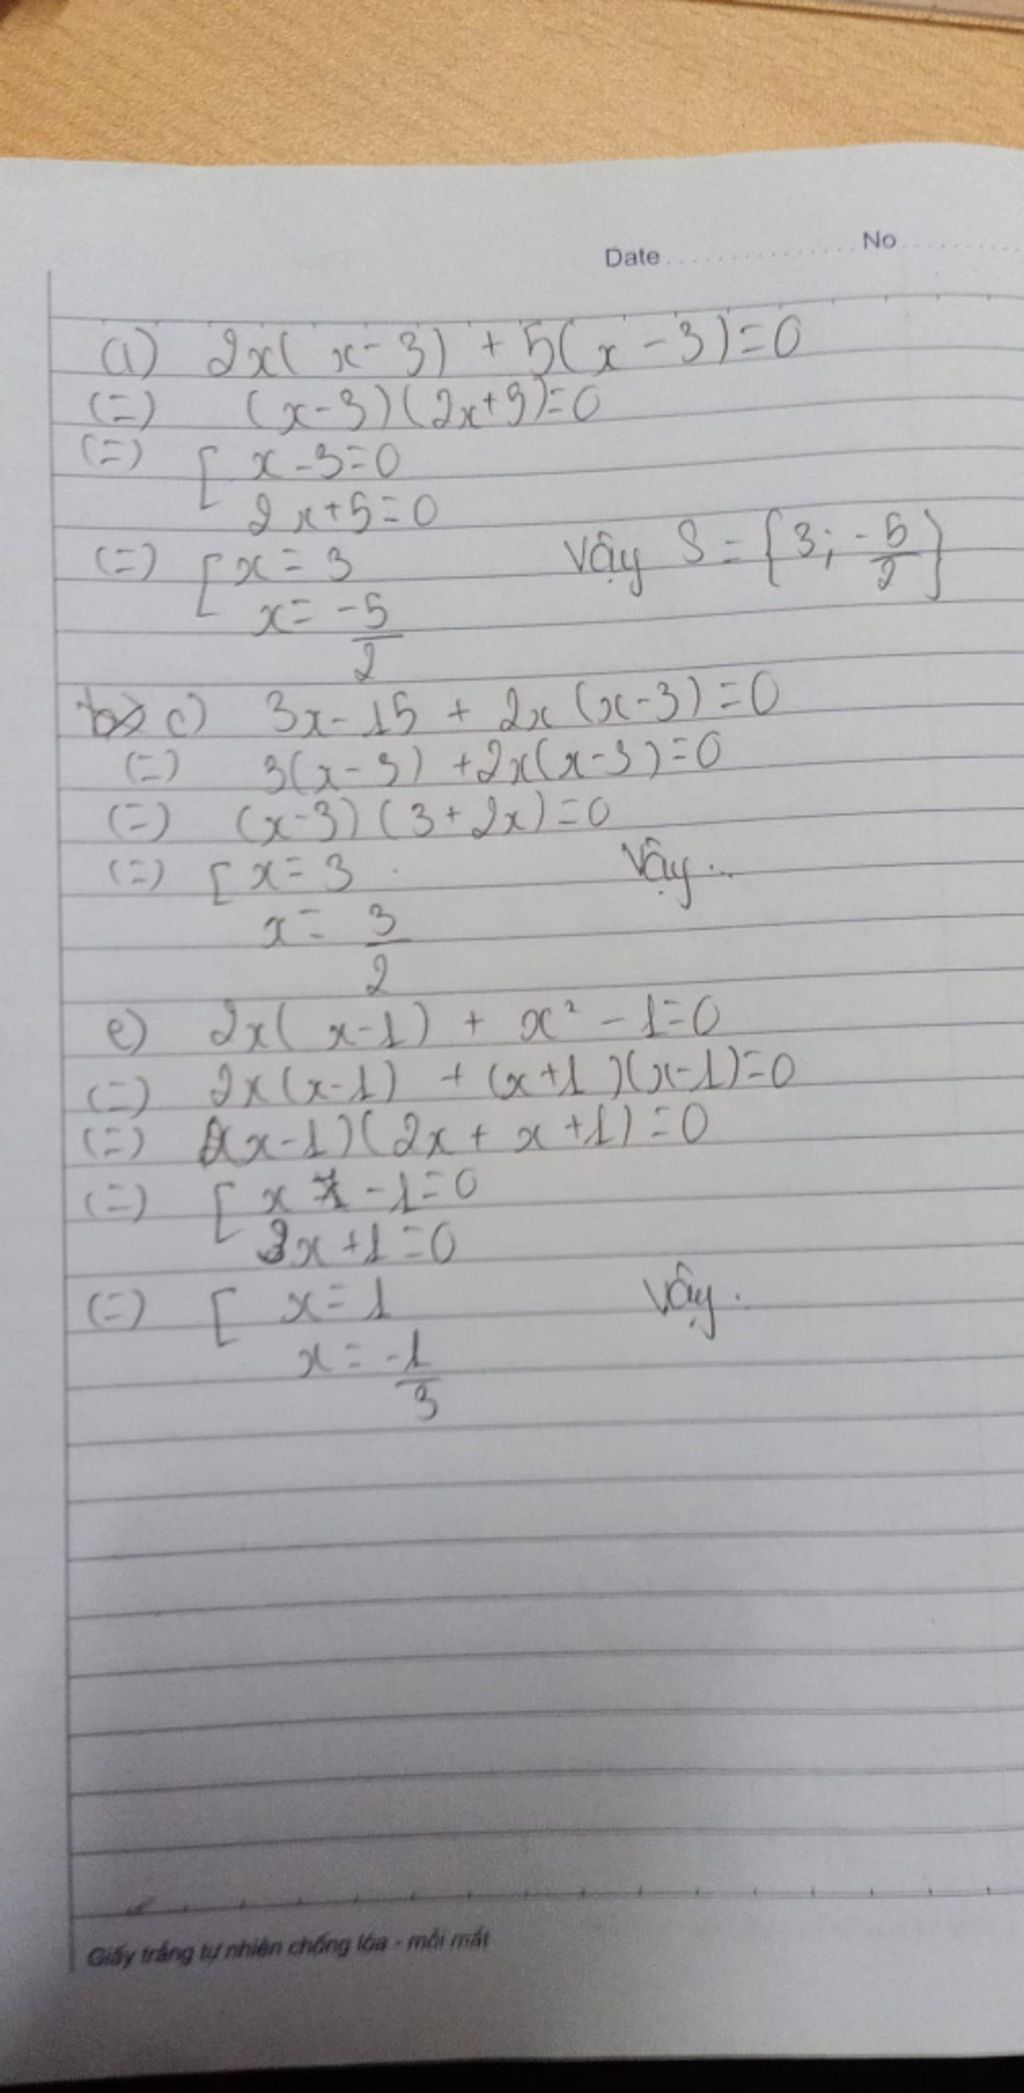 Date No
a) 2x(x-3) + 5(x-3)=0
(=) (x-3)(2x+9)=0
(=) [ x-3=0
2x+5=0
(=) [ x = 3 Vậy S = {3; -5/2}
x = -5/2
c) 3x-15 + 2x(x-3)=0
(=) 3(x-3) +2x(x-3)=0
(=) (x-3)(3+2x)=0
(=) [ x = 3 Vậy...
x = 3/2
e) 2x(x-1) + x² - 1=0
(=) 2x(x-1) + (x+1)(x-1)=0
(=) (x-1)(2x + x +1)=0
(=) [ x - 1=0
3x +1=0
(=) [ x = 1 Vậy.
x = -1/3
Giấy trắng tự nhiên chống lóa - mỏi mắt